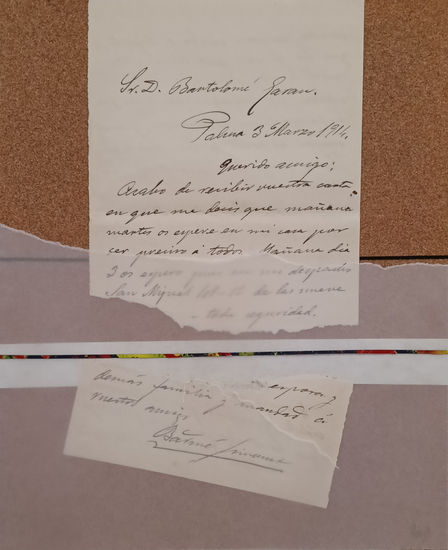 Sr. D. Bartolomé Garau.
Palma 3 Marzo 1914.
Querido amigo;
Acabo de recibir vuestra carta
en que me decís que mañana
martes os espere en mi casa por
ser preciso á todos. Mañana día
3 os espero en mi despacho
San Miguel de las nueve
toda seguridad.
esposa y
demás familia y mandad á
vuestro amigo